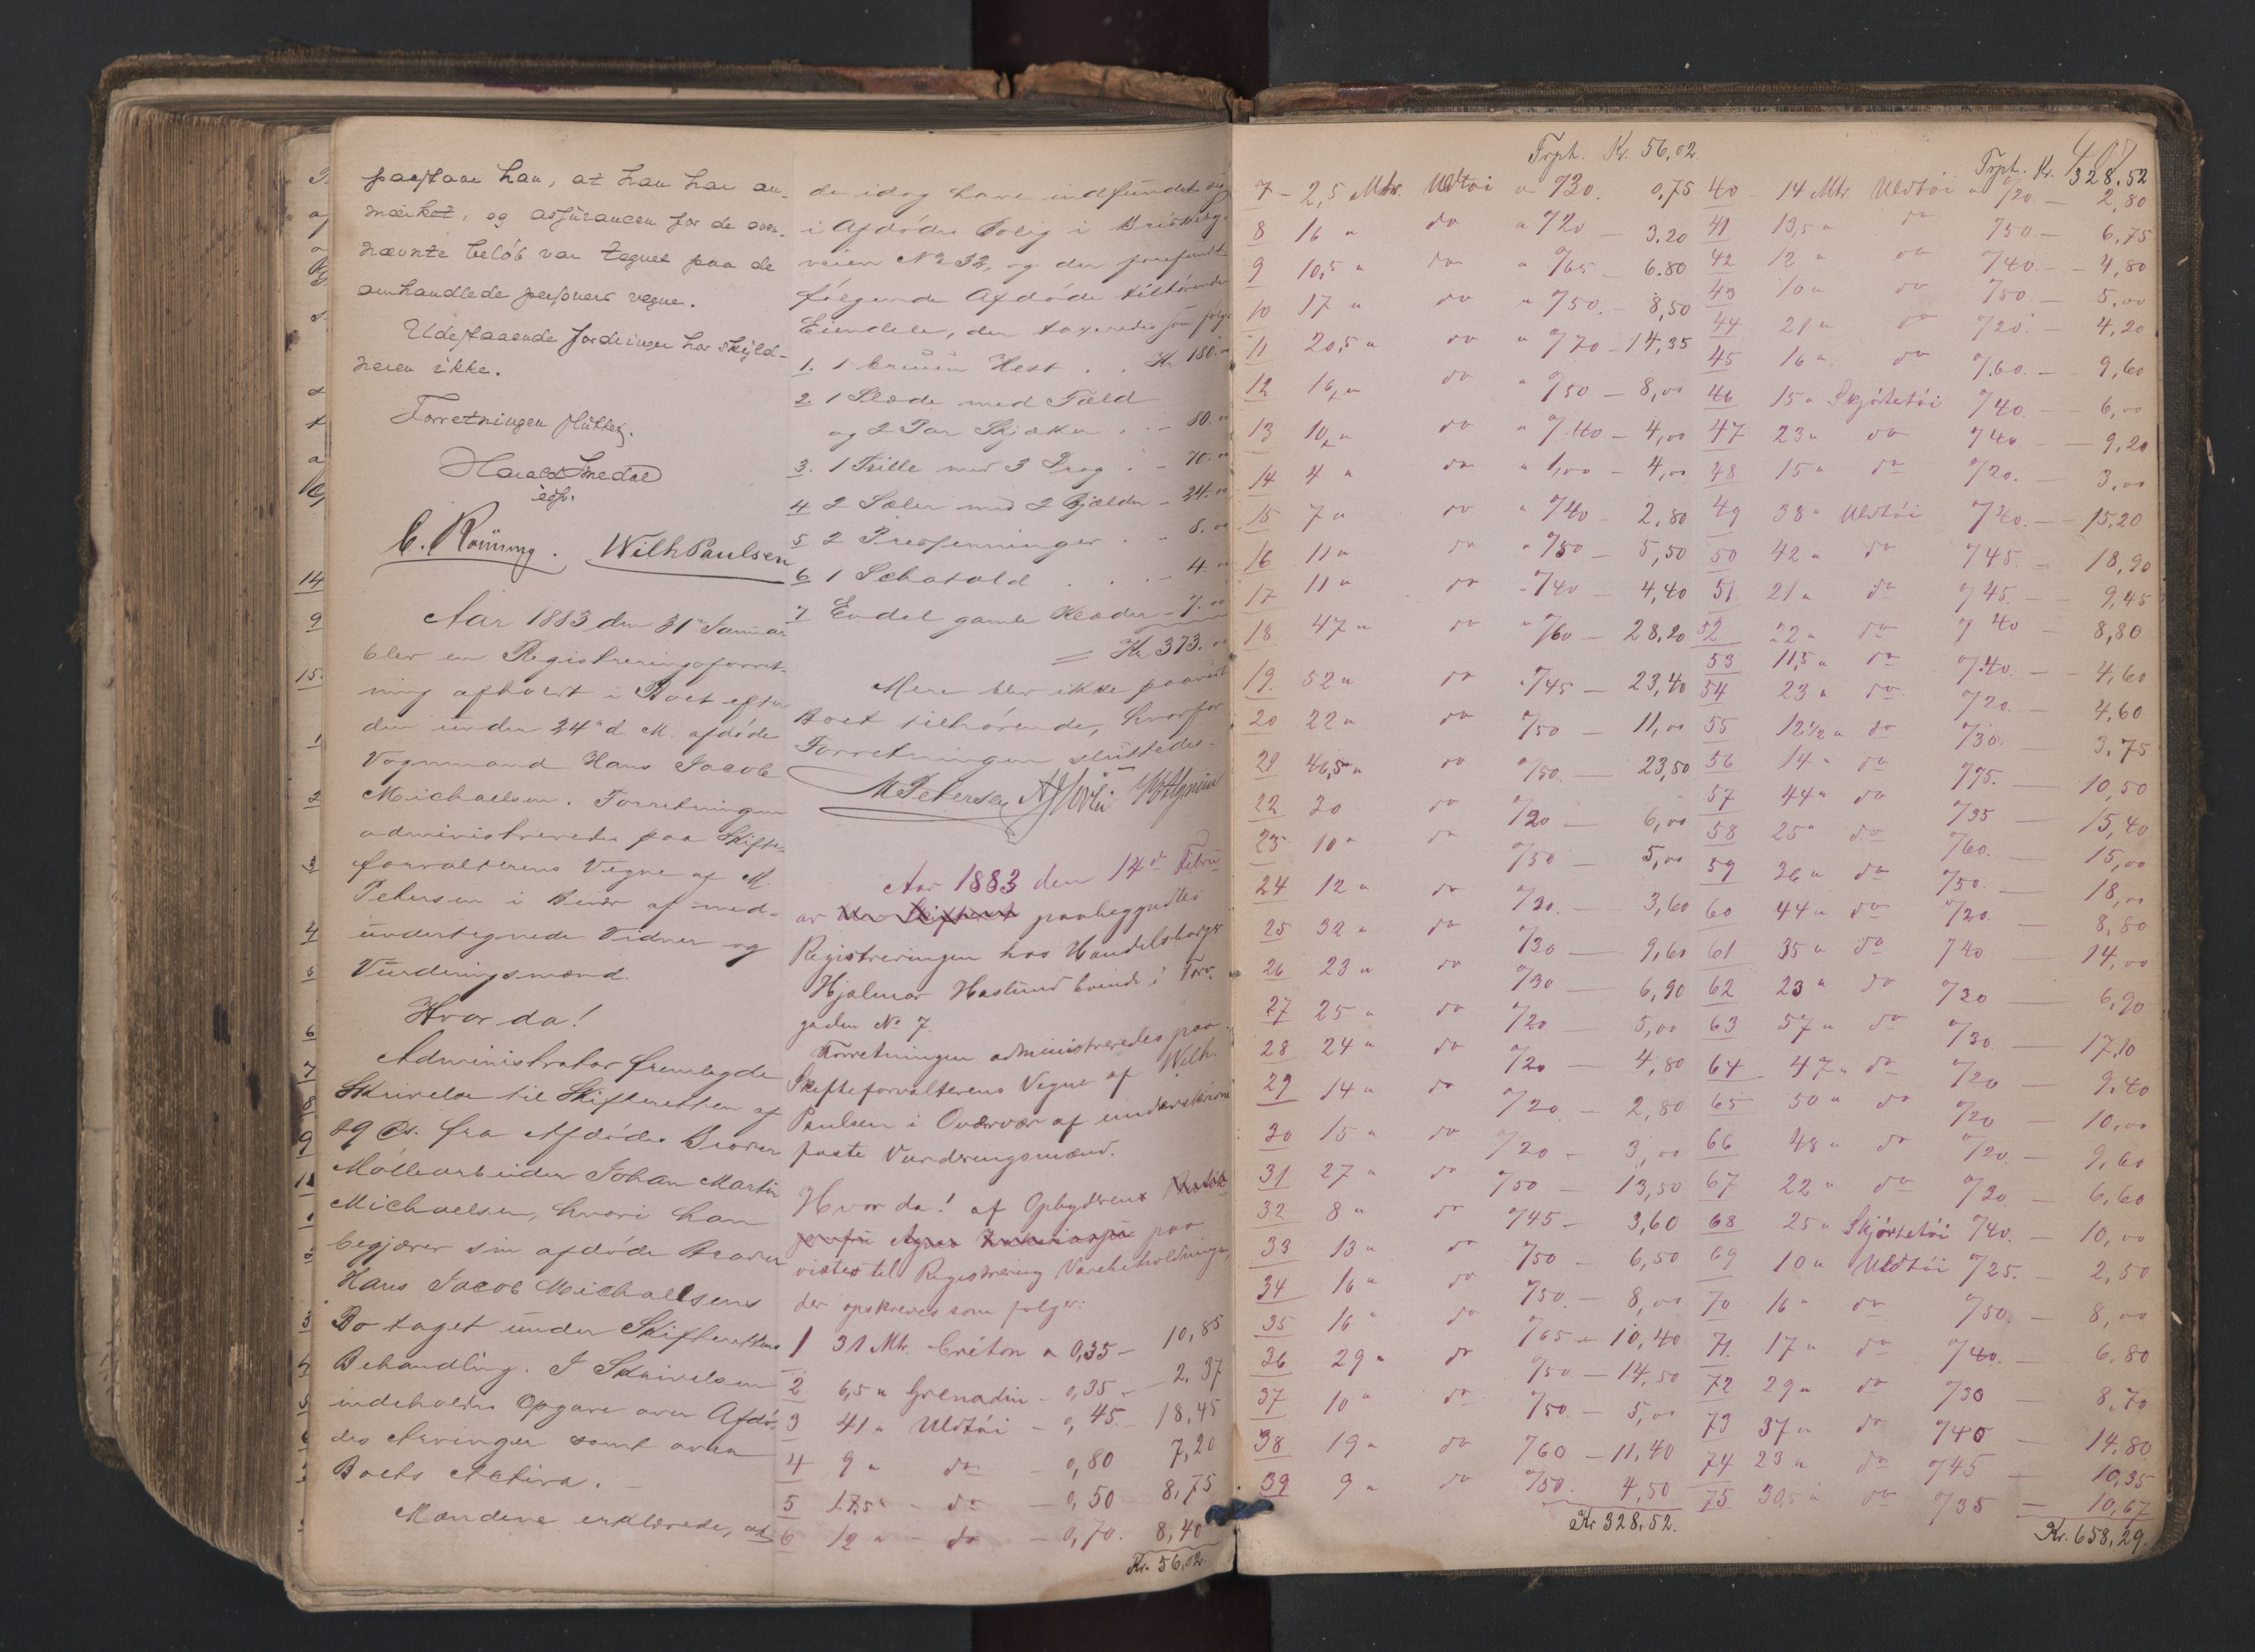 paastaar han, at han har an-
mærket, og assurancen for de oven-
nævnte beløb var tegnet paa de
omhandlede personers vegne.
Udestaaende fordringer har skyld-
neren ikke.
Forretningen sluttet.
Harald Smedal
edsv.
C. Rönning. Wilh Paulsen
Aar 1883 den 31 Januar
blev en Registreringsforret-
ning afholdt i Boet efter
den under 24 d. M. afdøde
Vognmand Hans Jacob
Michaelsen. Forretningen
administreredes paa Skifte-
forvalterens Vegne af M.
Petersen i Overvær af med-
undertegnede Vidner og
Vurderingsmænd.
Hvor da!
Administrator fremlagde
Skrivelse til Skifteretten af
29 ds. fra Afdødes Broder
Møllearbeider Johan Martin
Michaelsen, hvori han
begjærer sin afdøde Broder
Hans Jacob Michaelsens
Bo taget under Skifterettens
Behandling. I Skrivelsen
indeholdes Opgave over Afdø-
des Arvinger samt over
Boets Activa.
Mændene erklærede, at
de idag have indfundet sig
i Afdødes Bolig i Briskeby-
veien No 32, og der forefandt
følgende Afdøde tilhørende
Eiendele, der taxeredes som følger
1. 1 bruun Hest . . Kr 180.00
2 1 Slæde med Fæld
og 2 Par Skjæker . - 80.00
3. 1 Trille med 3 Drag . - 70.00
4 2 Seler med 2 Bjælder - 24.00
5 2 Presenninger . - 8.00
6 1 Schatold . . . - 4.00
7 Endel gamle Klæder - 7.00
= Kr 373.00
Mere blev ikke paavist
Boet tilhørende, hvorfor
Forretningen sluttedes.
M Petersen
Aar 1883 den 14de Febru-
ar paabegyndtes
Registreringen hos Handelsborger
Hjalmar Haslund boende i Torv-
gaden No 7.
Forretningen administreredes paa
Skifteforvalterens Vegne af Wilh.
Paulsen i Overvær af underskrevne
faste Vurderingsmænd.
Hvor da! af Opbyderens
paa
vistes til Registrering Varebeholdningen,
der opskreves som følger:
1 31 Mtr. Créton a 0,35 - 10,85
2 6,5 " Grenadin - 0,35 - 2,37
3 41 " Uldtøi - 0,45 - 18,45
4 9 " do - 0,80 7,20
5 17,5 " - do - 0,50 8,75
6 12 " - do - 0,70. 8,40
Kr. 56,02.
Trph. Kr. 56,02
7 - 2,5 Mtr Uldtøi a %30. 0,75
8 16 " do " %20 - 3.20
9 10,5 " do " %65 - 6.80
10 17 " do " %50. - 8,50
11 20,5 " do " %70 - 14,35
12 16 " do " %50 - 8,00
13 10 " do " %40 - 4,00
14 4 " do " 1,00 - 4,00
15 7 " do " %40 - 2,80
16 11 " do " %50 - 5,50
17 11 " do " %40 - 4,40
18 47 " do " %60 - 28,20
19. 52 " do " %45 - 23,40
20 22 " do %50 - 11,00
21 46,5 " do %50. - 23,50
22 30 do %20 - 6,00
23 10 " do %50 - 5,00
24 12 " do %30. - 3,60
25 32 " do %30 - 9,60
26 23 " do %30 - 6,90
27 25 " do %20 - 5,00
28 24 " do %20 - 4,80
29 14 " do %20 - 2,80
30 15 " do %20 - 3,00
31 27 " do %50 - 13,50
32 8 " do %45 - 3,60
33 13 " do %50 - 6,50
34 16 " do %50 - 8,00
35 16 " do %65 - 10,40
36 29 " do %50 - 14,50
37 10 " do %50. - 5,00
38 19 " do %60 - 11,40
39 9 " do %50. 4,50
Kr 328,52.
Trph. Kr. 328,52
40 14 Mtr. Uldtøi a %20. - 2,80
41 13,5 " do %50. - 6,75
42 12 " do %40. - 4,80
43 10 " do %50. - 5,00
44 21 " do %20. - 4,20
45 16 " do %60. - 9,60
46 15 " Skjørtetøi %40. - 6,00
47 23 " do %40 - 9,20
48 15 " do %20. - 3,00
49 38 " Uldtøi %40. - 15,20
50 42 " do %45. - 18,90
51. 21 " do %45. - 9,45
52 22 " do %40 - 8,80
53 11,5 " do %40. - 4,60
54 23 " do %20. - 4,60
55 12 1/2 " do %30. - 3,75
56 14 " do %75. - 10,50
57 44 " do %35 - 15,40
58 25 " do %60. - 15,00
59 36 " do %50. - 18,00
60 44 " do %20. - 8,80
61 35 " do %40 - 14,00
62 23 " do %30 - 6,90
63 57 " do %30 - 17,10
64 47 " do %20 - 9,40
65 50 " do %20 - 10,00
66 48 " do %20. - 9,60
67 22 " do %30 - 6,60
68 25 " Skjørtetøi %40. - 10,00
69 10 " Uldtøi %25. - 2,50
70 16 " do %50. - 8,00
71. 17 " do %40. - 6,80
72 29 " do %30 - 8,70
73 37 " do %40 - 14,80
74 23 " do %45 - 10,35
75 30,5 " do %35 - 10,67
Kr. 658,29.